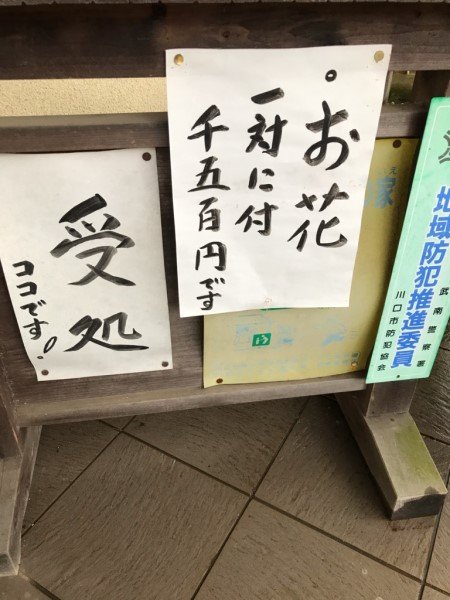 。お花
一対に付
千五百円です
受処
ココです!
地域防犯推進委員
武南警察署
川口市防犯協会
塚